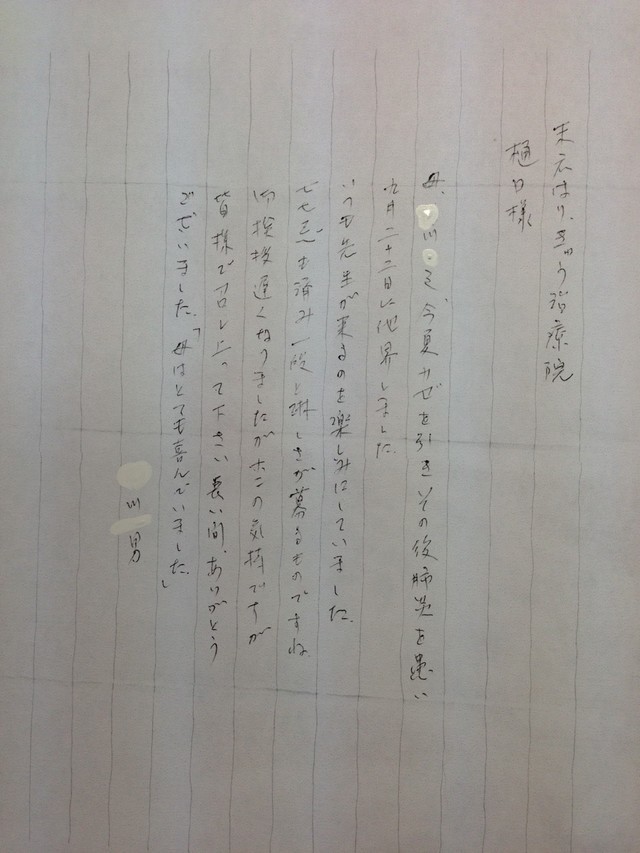 末広はり、きゅう治療院
樋口様
母、川 ミ、今夏カゼを引きその後肺炎を患い
九月二十二日に他界しました.
いつも先生が来るのを楽しみにしていました.
七七忌も済み一段と淋しさが募るものですね
御挨拶遅くなりましたがホンの気持ですが
皆様で召し上って下さい 長い間、ありがとう
ございました.「母はとても喜んでいました.」
川 男